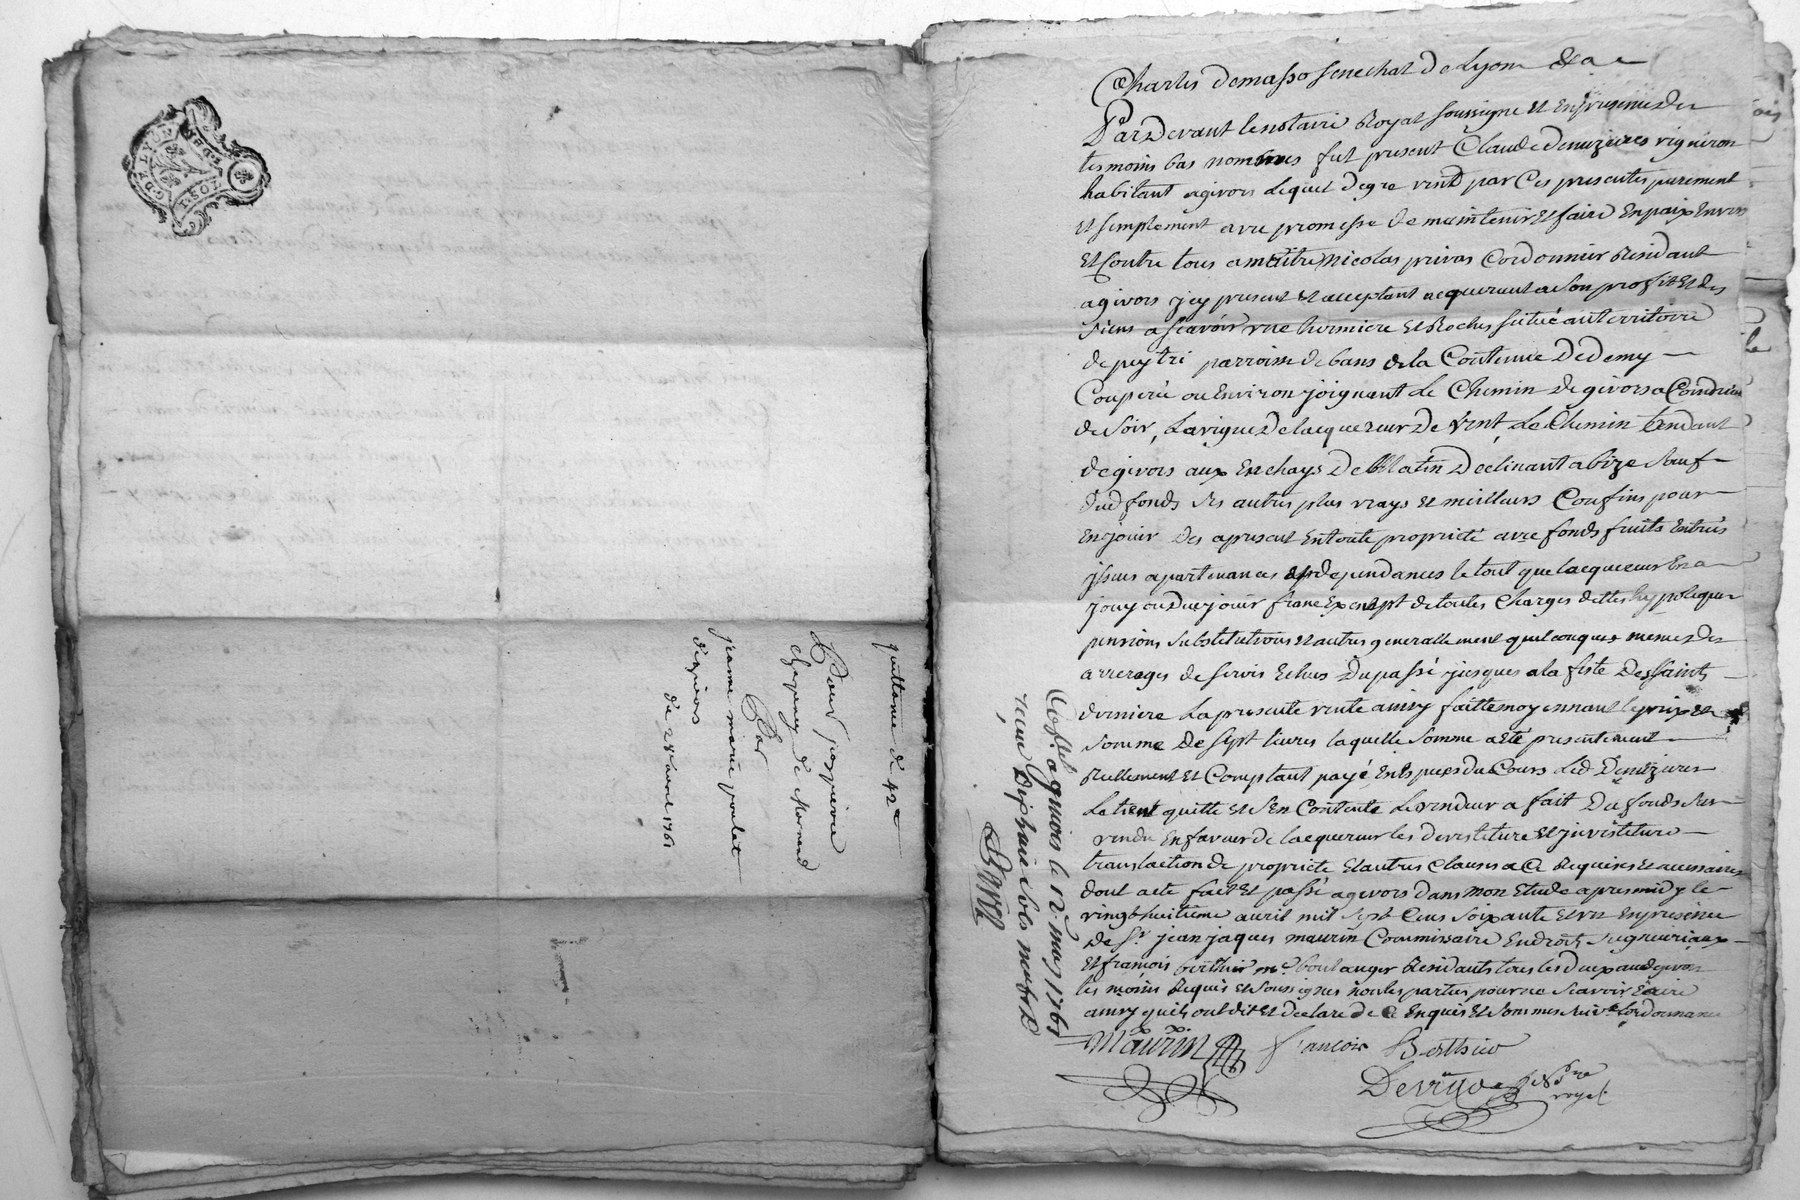 G. DE LYON
2 SOLS
quittance de 42#
Pour pierre
chapuy de Mornand
Par
jeanne marie poulat
de givors
du 28 avril 1761
Charles Demasso senechal de Lyon &a
Pardevant le notaire Royal soussigne et En presence des
temoins bas nommes fut present Claude Denuzieres vigneron
habitant agivors Lequel de gre vend par Ces presentes purement
et simplement avec promesse de maintenir et faire En paix Envers
et Contre tous a maitre Nicolas privas Cordonnier Residant
agivors icy present et acceptant acquerant a son profit et des
siens a scavoir une hermiere et Roches situé au territoire
de peytri parroisse de bans de la Contenue De demy
Couperée ou Environ joignant Le Chemin De givors a Condrieu
de soir, La vigne De lacquereur De vent, Le Chemin tendant
de givors aux Enchays De Declinant a bize sauf
dud fonds ses autres plus vrays et meilleurs Confins pour
En jouir des apresent En toute proprieté avec fonds fruits Entrées
issues apartenances et dependances le tout que lacquereur En a
jouy ou Due jouir franc Exempt de toutes Charges dettes hypoteques
pensions substitutions et autres generallement quelconques memes des
arrerages de servis Echus Du passé jusques a la feste Des saints
derniere La presente vente ainsy faitte moyennant le prix et
somme De sept livres laquelle somme a eté presentement
Reellement et Comptant payé En Especes du Cours Led Denuzieres
Le tient quitte et s'En Contente Le vendeur a fait Du fonds sus
vendu En faveur de lacquereur les devestiture et investiture
translaction de proprieté Et autres Clauses a Ce Requises et necessaires
dont acte fait et passé agivors dans mon Etude apres midy le
vingt huitième avril mil sept Cens soixante et un En presence
de Sr jean jaques maurin Commissaire En droits seigneuriaux
et françois berthier me boulanger Residants tous les deux audt givors
temoins Requis et soussignes non les parties pour ne scavoir Ecrire
ainsy quils ont dit et declare de Ce Enquis et sommes suivt Lordonnance
Maurin françois Berthier
Devigne nore
royal
Contlé a givors le 12 may 1761
recu Dix huit sols